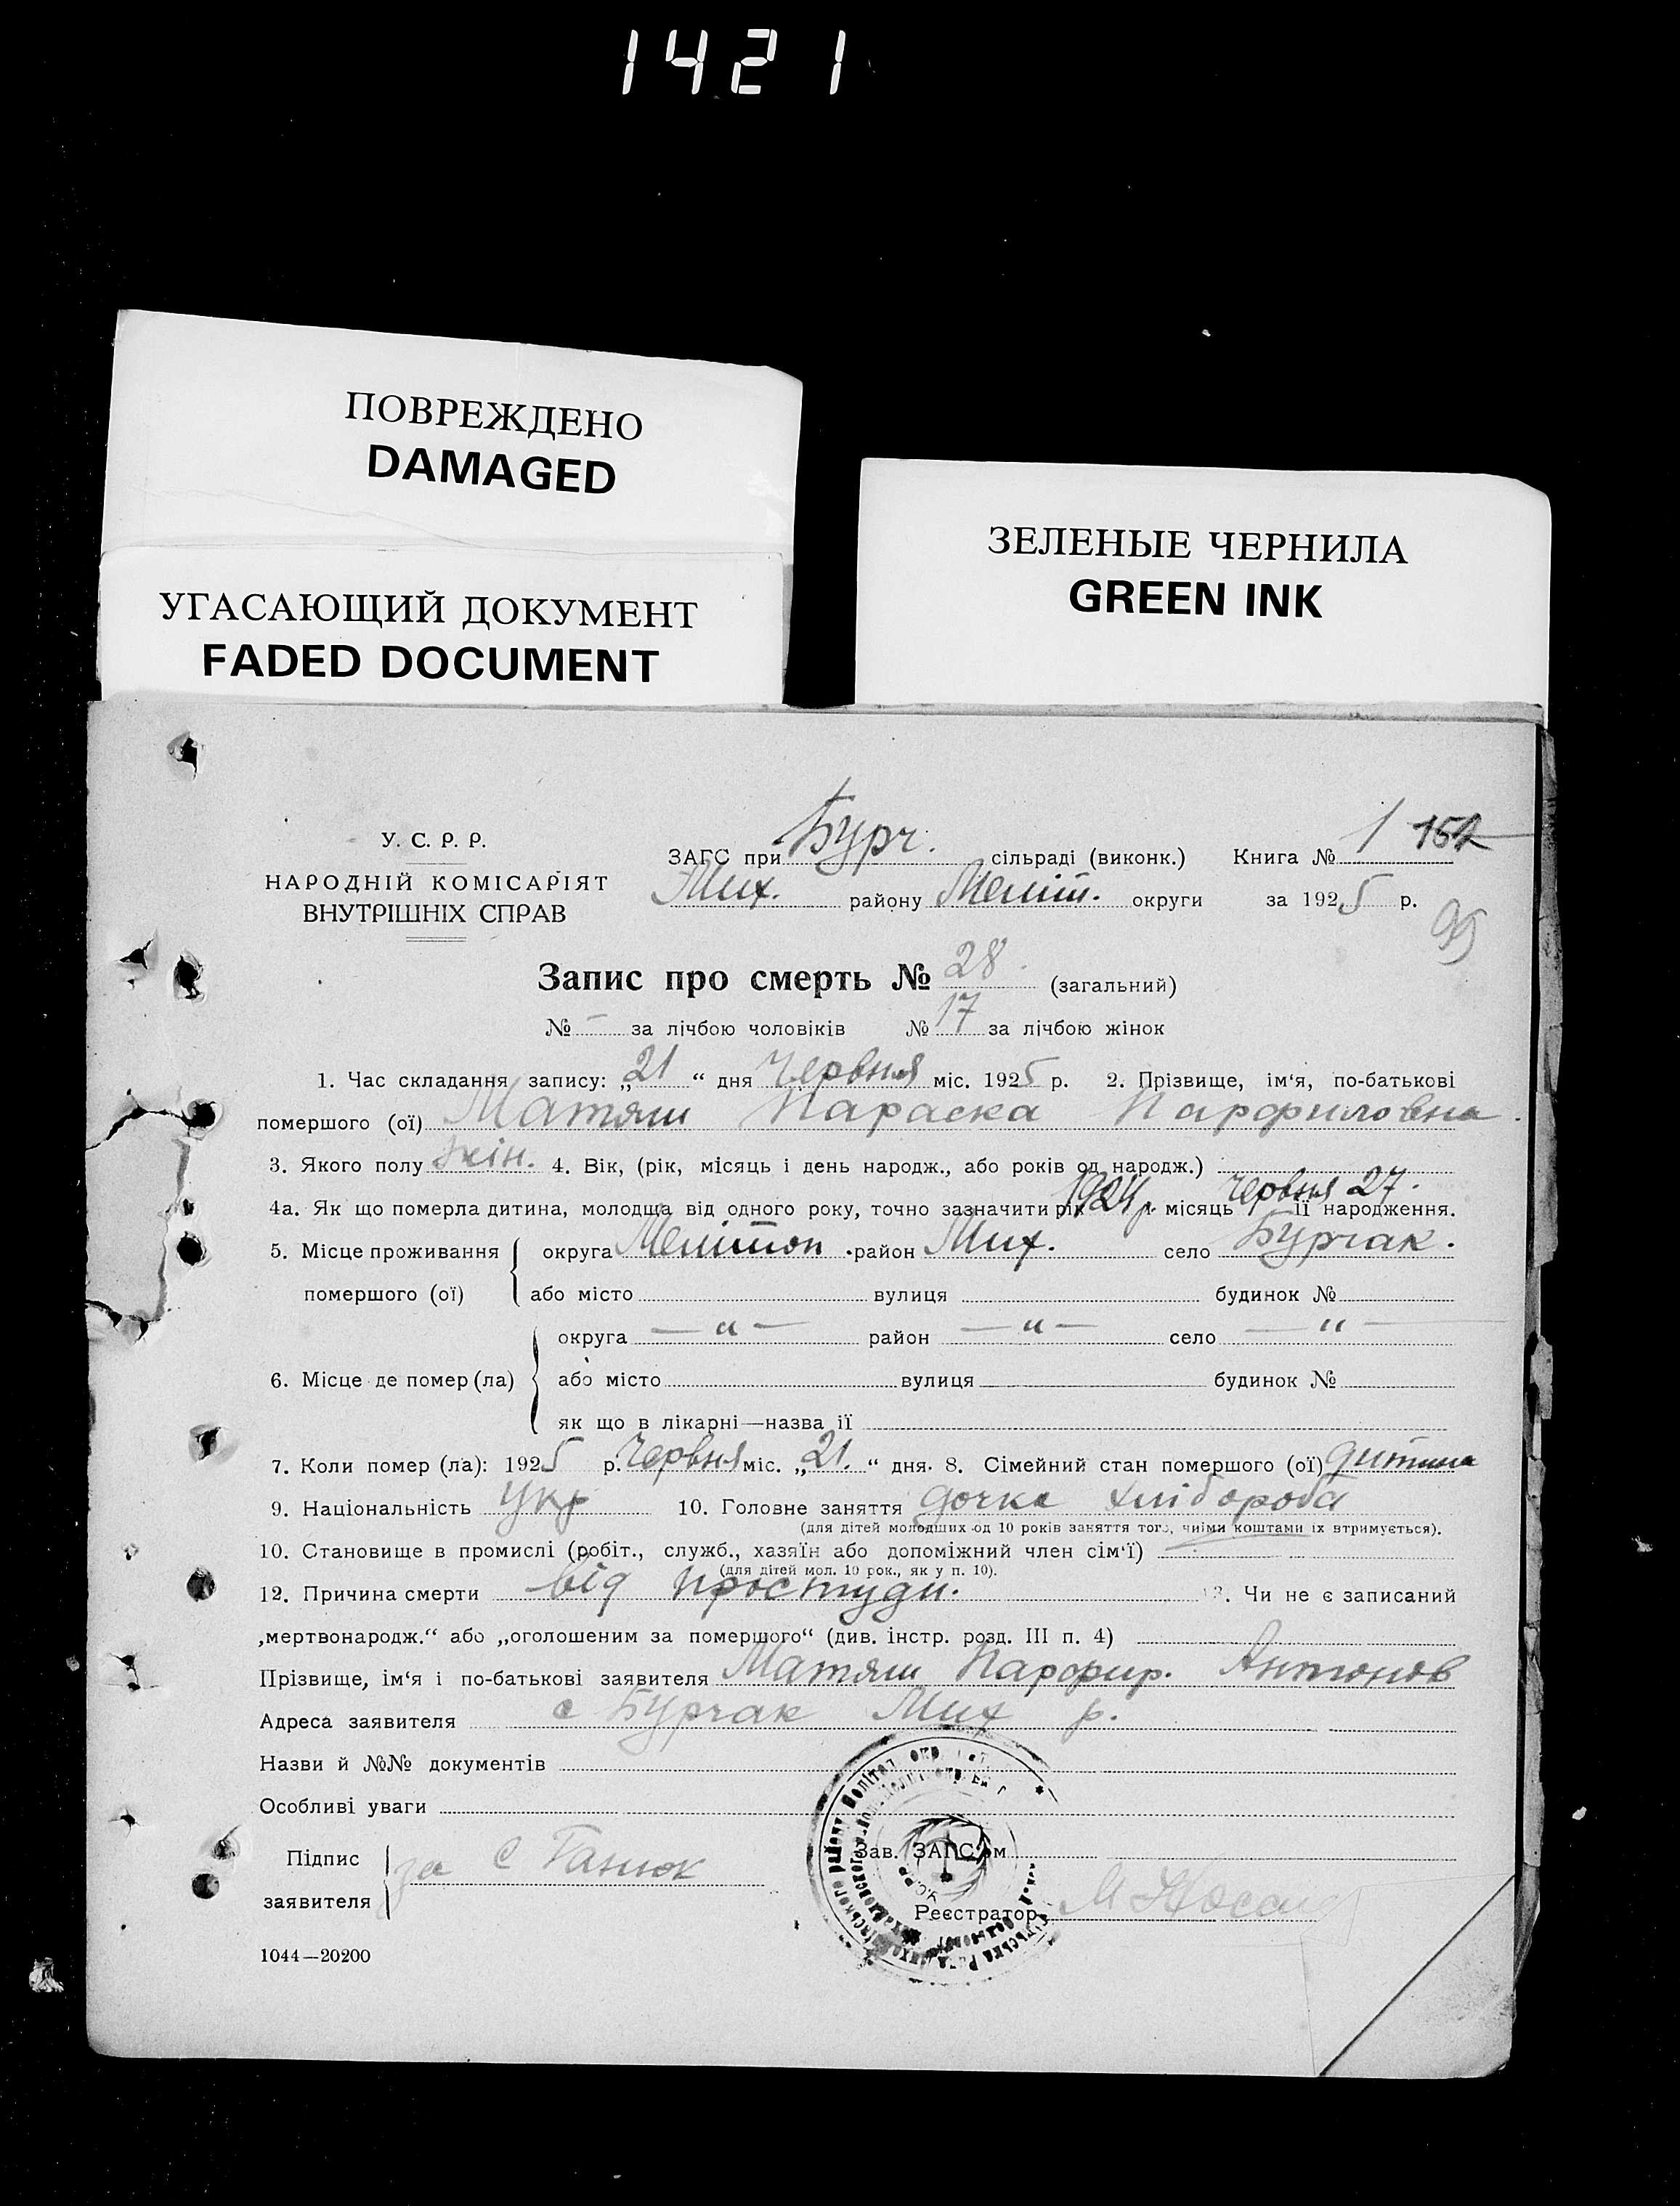 1421
ПОВРЕЖДЕНО
DAMAGED
УГАСАЮЩИЙ ДОКУМЕНТ
FADED DOCUMENT
ЗЕЛЕНЫЕ ЧЕРНИЛА
GREEN INK
У. С. Р. Р.
НАРОДНІЙ КОМІСАРІЯТ
ВНУТРІШНІХ СПРАВ
ЗАГС при Бурч. сільраді (виконк.) Книга № 1
Мих. району Меліт. округи за 1925 р.
99
Запис про смерть № 28. (загальний)
№ – за лічбою чоловіків № 17 за лічбою жінок
1. Час складання запису: „21“ дня Червня міс. 1925 р. 2. Прізвище, ім‘я, по-батькові
помершого (ої) Матяш Параска Парфиловна.
3. Якого полу жін. 4. Вік, (рік, місяць і день народж., або років од народж.)
4а. Як що померла дитина, молодща від одного року, точно зазначити рік 1924 р. місяць Червня 27. її народження.
5. Місце проживання округа Мелітоп. район Мих. село Бурчак.
помершого (ої) або місто вулиця будинок №
округа — „ — район — „ — село — „ —
6. Місце де помер (ла) або місто вулиця будинок №
як що в лікарні—назва її
7. Коли помер (ла): 1925 р. Червня міс. „21.“ дня. 8. Сімейний стан помершого (ої) дитина
9. Національність укр 10. Головне заняття дочка хлібороба
(для дітей молодіших од 10 років заняття того, чиїми коштами їх втримується).
10. Становище в промислі (робіт., служб., хазяїн або допоміжний член сім‘ї)
(для дітей мол. 10 рок., як у п. 10).
12. Причина смерти від простуди. Чи не є записаний
„мертвонародж.“ або „оголошеним за помершого“ (див. інстр. розд. III п. 4)
Прізвище, ім‘я і по-батькові заявителя Матяш Парфир. Антонов
Адреса заявителя с Бурчак Мих р.
Назви й №№ документів
Особливі уваги
Підпис
заявителя за С Ганюк
Зав. ЗАГС‘ом
Реєстратор М
1044—20200